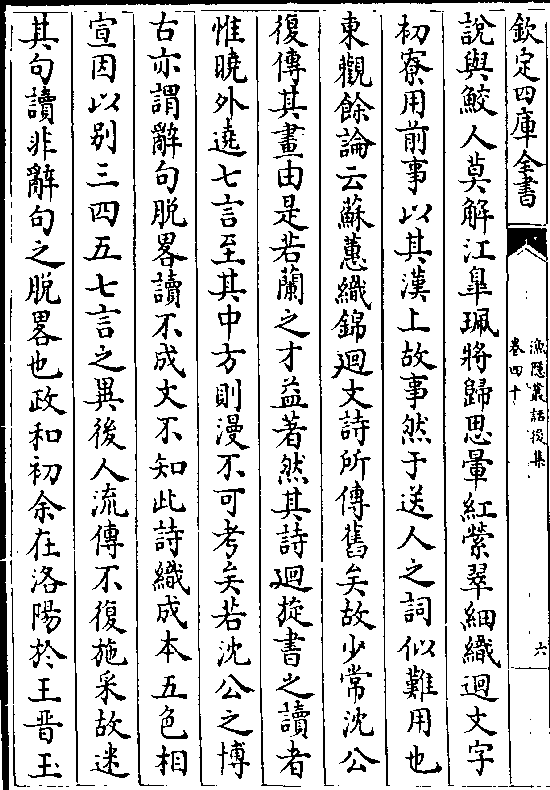 欽定四庫全書
漁隱叢話後集
卷四十
六
說與鮫人莫解江臯珮將歸思暈紅縈翠細織迴文字
初寮用前事以其漢上故事然于送人之詞似難用也
東觀餘論云蘇蕙織錦迴文詩所傳舊矣故少常沈公
復傳其畫由是若蘭之才益著然其詩迴旋書之讀者
惟曉外遶七言至其中方則漫不可考矣若沈公之博
古亦謂辭句脱畧讀不成文不知此詩織成本五色相
宣因以别三四五七言之異後人流傳不復施采故迷
其句讀非辭句之脱畧也政和初余在洛陽於王晋玉